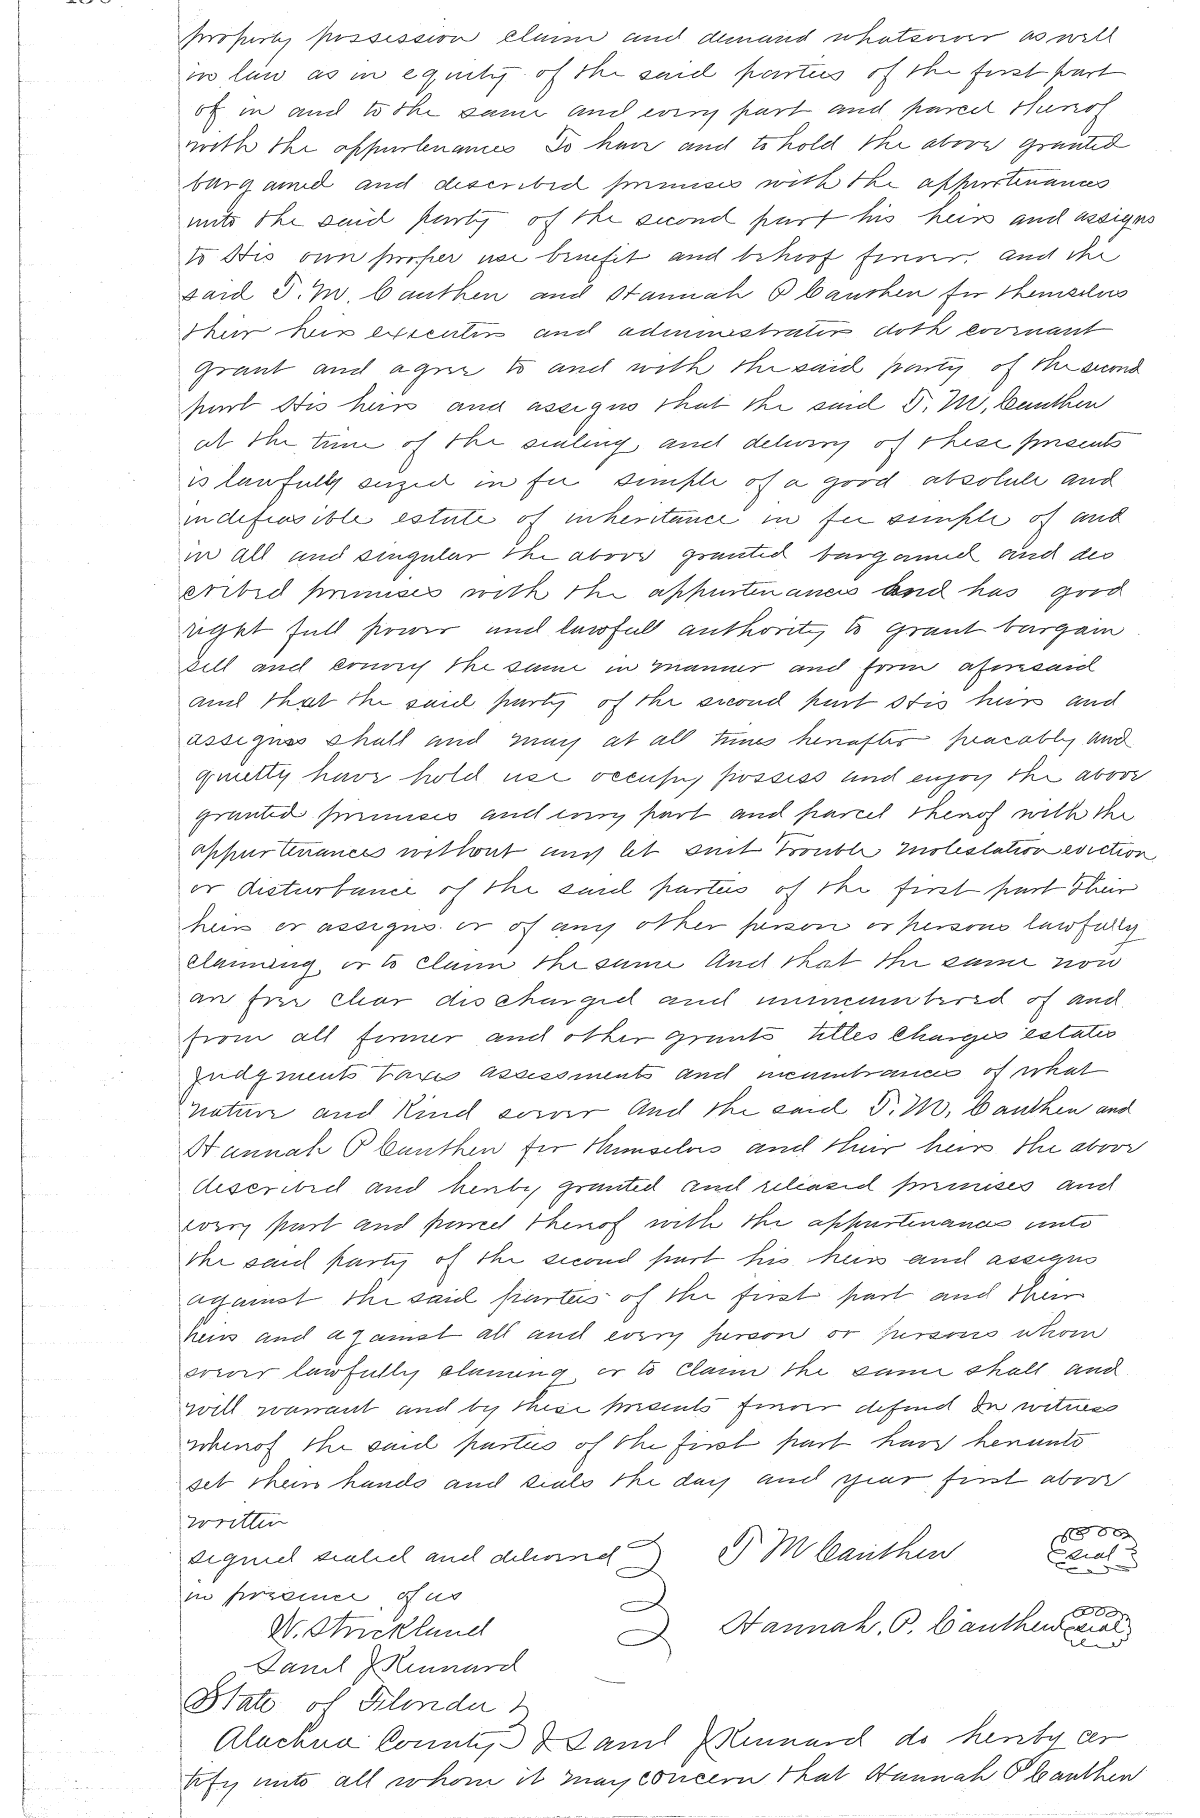 property possession claim and demand whatsoever as well
in law as in equity of the said parties of the first part
of in and to the same and every part and parcel thereof
with the appurtenances To have and to hold the above granted
bargained and described premises with the appurtenances
unto the said party of the second part his heirs and assigns
to His own proper use benefit and behoof forever. and the
said T. M. Cauthen and Hannah P Cauthen for themselves
their heirs executors and administrators doth covenant
grant and agree to and with the said party of the second
part His heirs and assigns that the said T. M. Cauthen
at the time of the sealing and delivery of these presents
is lawfully seized in fee simple of a good absolute and
indefeasible estate of inheritance in fee simple of and
in all and singular the above granted bargained and des
cribed premises with the appurtenances and has good
right full power and lawfull authority to grant bargain
sell and convey the same in manner and form aforesaid
and that the said party of the second part His heirs and
assignes shall and may at all times hereafter peacably and
quietly have hold use occupy possess and enjoy the above
granted premises and every part and parcel thereof with the
appurtenances without any let suit trouble molestation eviction
or disturbance of the said parties of the first part their
heirs or assigns or of any other person or persons lawfully
claiming or to claim the same And that the same now
are free clear discharged and unincumbered of and
from all former and other grants titles charges estates
judgments taxes assessments and incumbrances of what
nature and kind soever And the said T. M. Cauthen and
Hannah P Cauthen for themselves and their heirs the above
described and hereby granted and released premises and
every part and parcel thereof with the appurtenances unto
the said party of the second part his heirs and assigns
against the said parties of the first part and their
heirs and against all and every person or persons whom
soever lawfully claiming or to claim the same shall and
will warrant and by these presents forever defend In witness
whereof the said parties of the first part have hereunto
set their hands and seals the day and year first above
written
signed sealed and delivered T M Cauthen seal
in presence of us
W. Strickland Hannah. P. Cauthen seal
Saml J Kennard
State of Florida
Alachua County I Saml J Kennard do hereby cer
tify unto all whom it may concern that Hannah P Cauthen